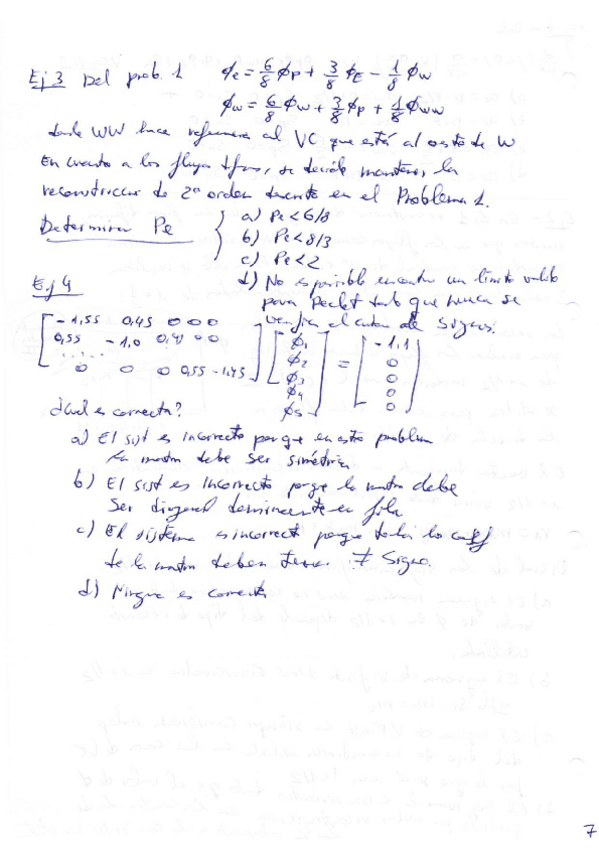 Ej 3 Del prob. 1 ϕe = 6/8 ϕP + 3/8 ϕE − 1/8 ϕW
ϕw = 6/8 ϕW + 3/8 ϕP + 1/8 ϕWW
donde WW hace referencia al VC que está al oeste de W
En cuanto a los flujos difus, se decide mantener la
reconstrucción de 2º orden descrita en el Problema 1.
Determinar Pe
a) Pe < 6/8
b) Pe < 8/3
c) Pe < 2
d) No es posible encontrar un límite válido
para Peclet tal que nunca se
verifica el criterio de signos.
Ej 4
[ −1,55 0,45 0 0 0
0,55 −1,0 0,45 0 0
. . . . . .
0 0 0 0,55 −1,45 ] [ ϕ1 ϕ2 ϕ3 ϕ4 ϕ5 ] = [ −1,1 0 0 0 0 ]
¿Cual es correcta?
a) El sist es incorrecto porque en este problema
la matriz debe ser simétrica
b) El sist es incorrecto porque la matriz debe
ser diagonal dominante en fila
c) El sistema es incorrecto porque todos los coef
de la matriz deben tener ≠ signo.
d) Ninguna es correcta
7